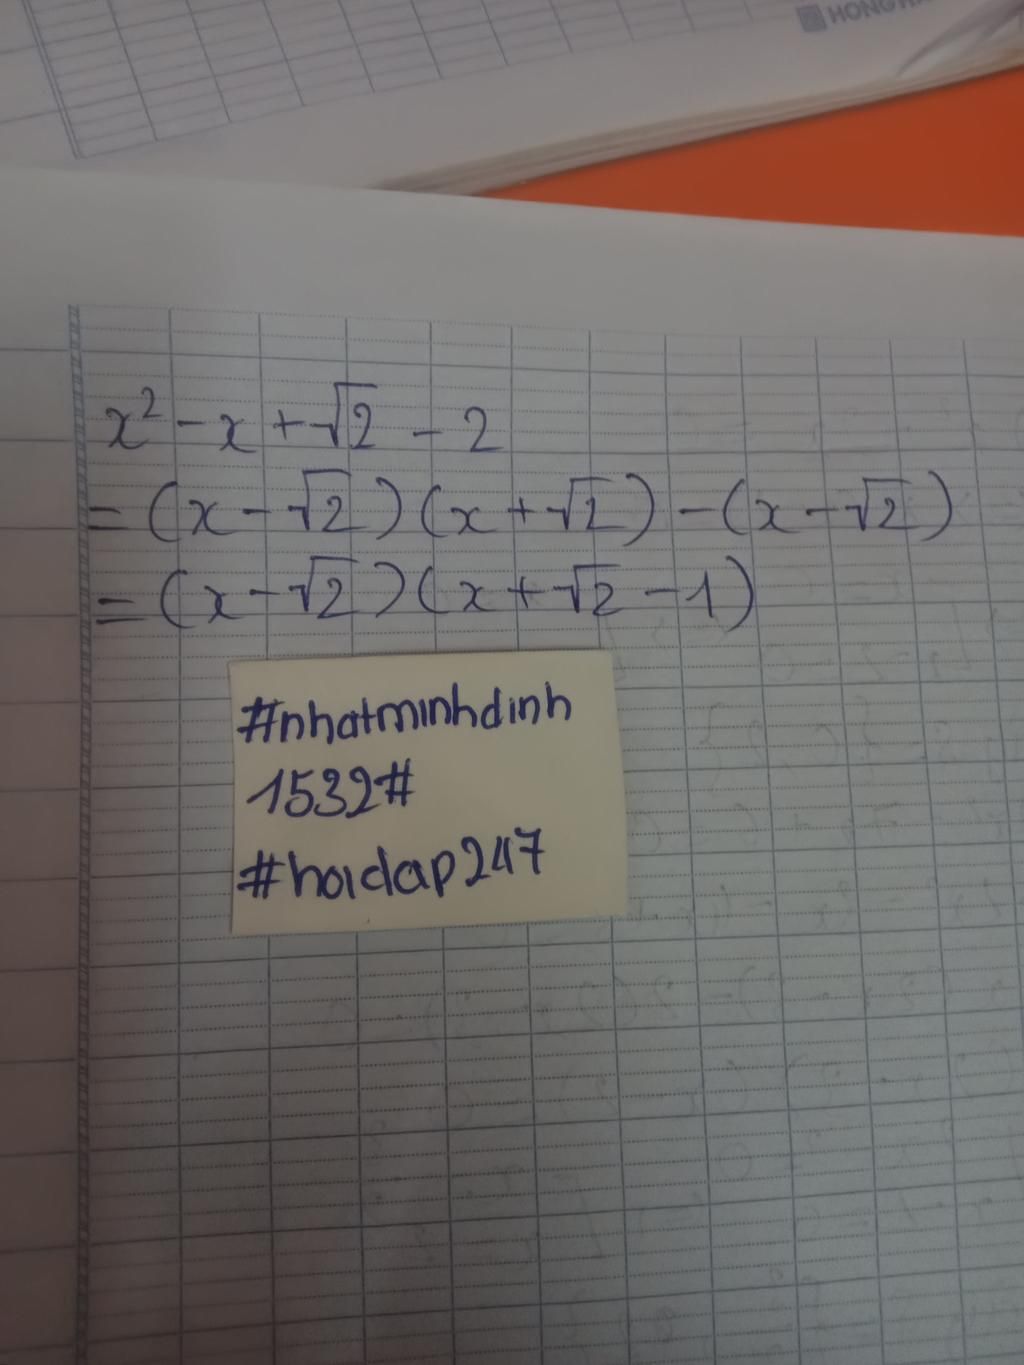 HONG HA
x² - x + √2 - 2
= (x - √2)(x + √2) - (x - √2)
= (x - √2)(x + √2 - 1)
#nhatminhdinh
1532#
#hoidap247